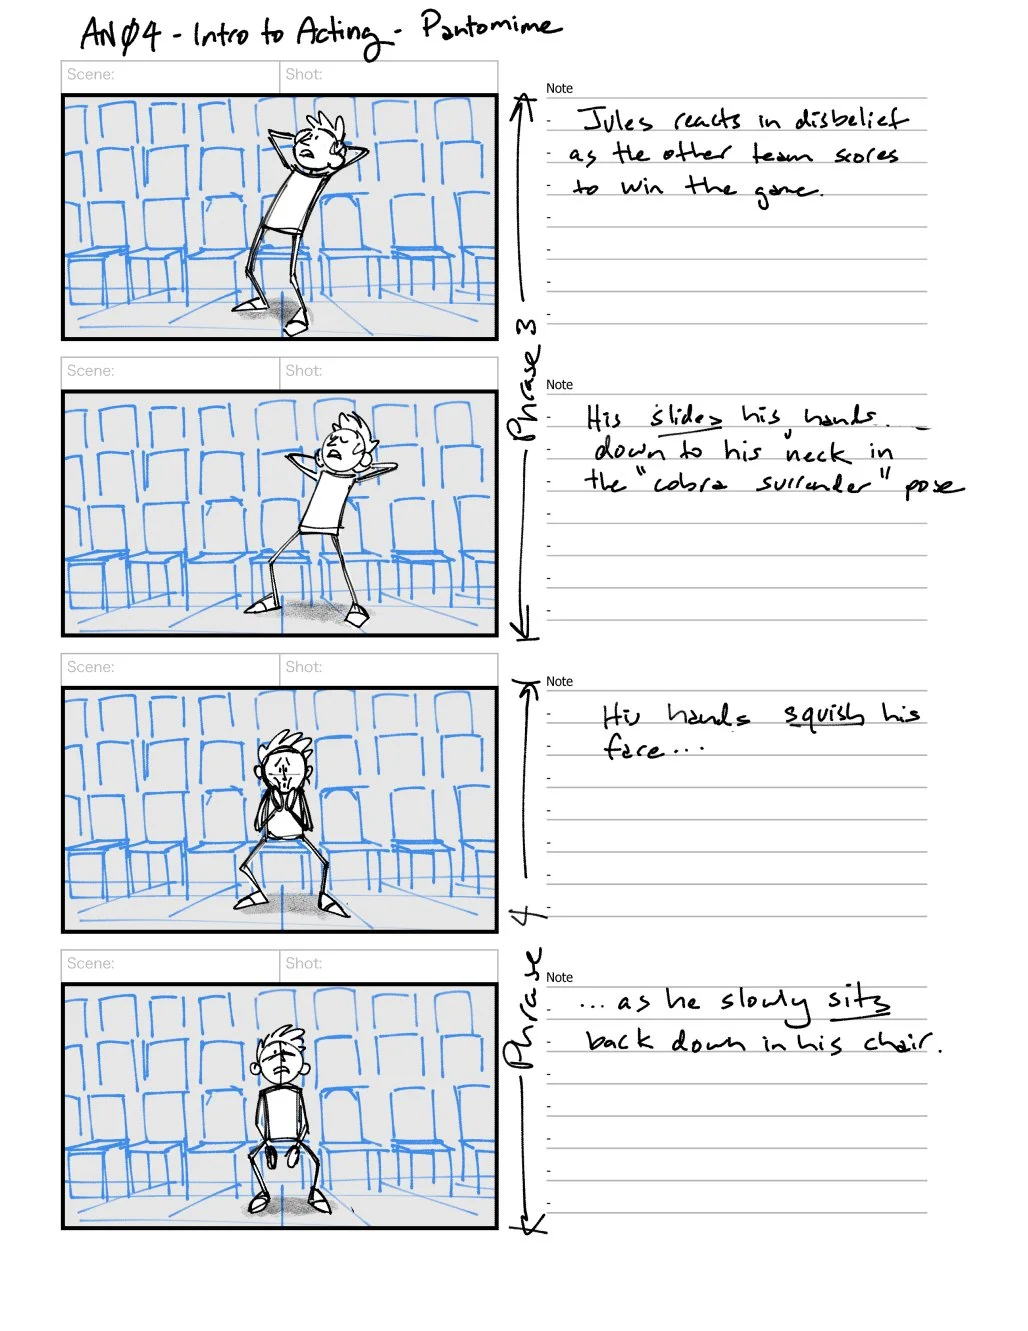 AN04 - Intro to Acting - Pantomime
Scene:
Shot:
Note
Jules reacts in disbelief
as the other team scores
to win the game.
Phrase 3
Scene:
Shot:
Note
His slides his hands
down to his neck in
the "cobra surrander" pose
Scene:
Shot:
Note
His hands squish his
face...
Phrase 4
Scene:
Shot:
Note
...as he slowly sits
back down in his chair.